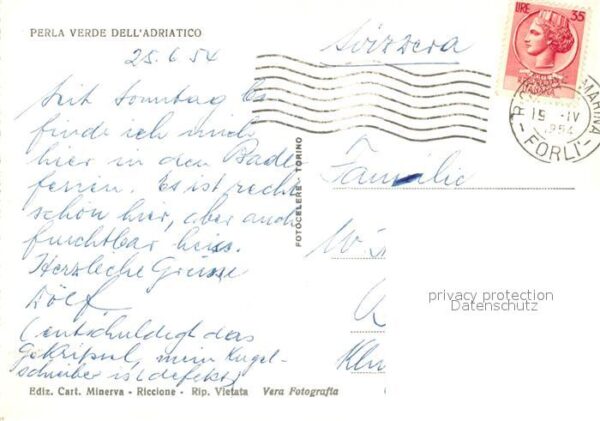 PERLA VERDE DELL'ADRIATICO
25.6.54
Seit Sonntag
finde ich mich
hier in den Bade
ferien. Es ist recht
schön hier, aber auch
furchtbar heiss.
Herzliche Grüsse
Dölf
(entschuldigt das
Gekripsel, mein Kugel-
schreiber is(defekt)
Ediz. Cart. Minerva - Riccione - Rip. Vietata Vera Fotografia
FOTOCELERE - TORINO
Svizzera
LIRE 35
MARINA
19 IV
1954
- FORLI' -
Familie
privacy protection
Datenschutz